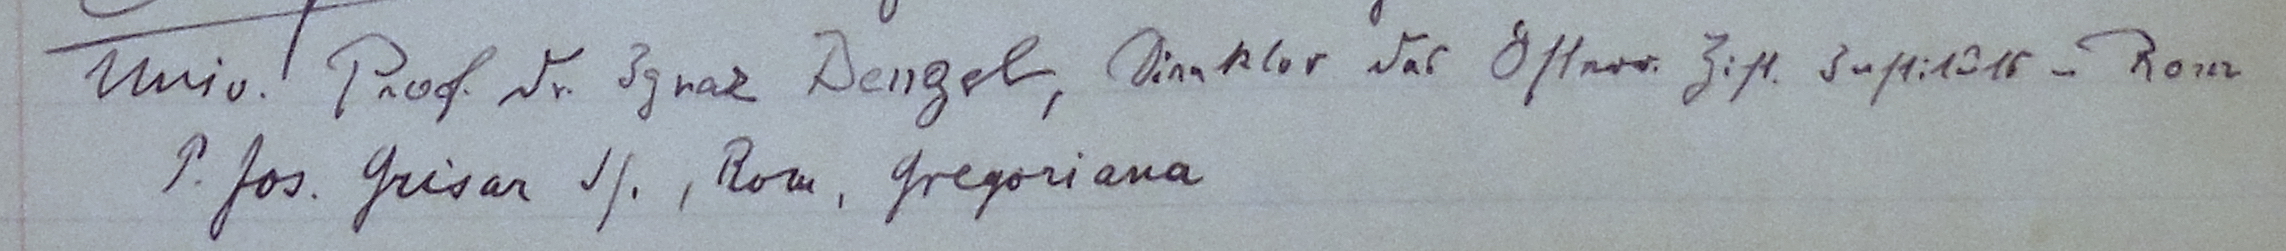 Univ. Prof. Dr. Ignaz Dengel, Direktor des Österr. Hist. Instituts - Rom
P. Jos. Grisar SJ., Rom, Gregoriana